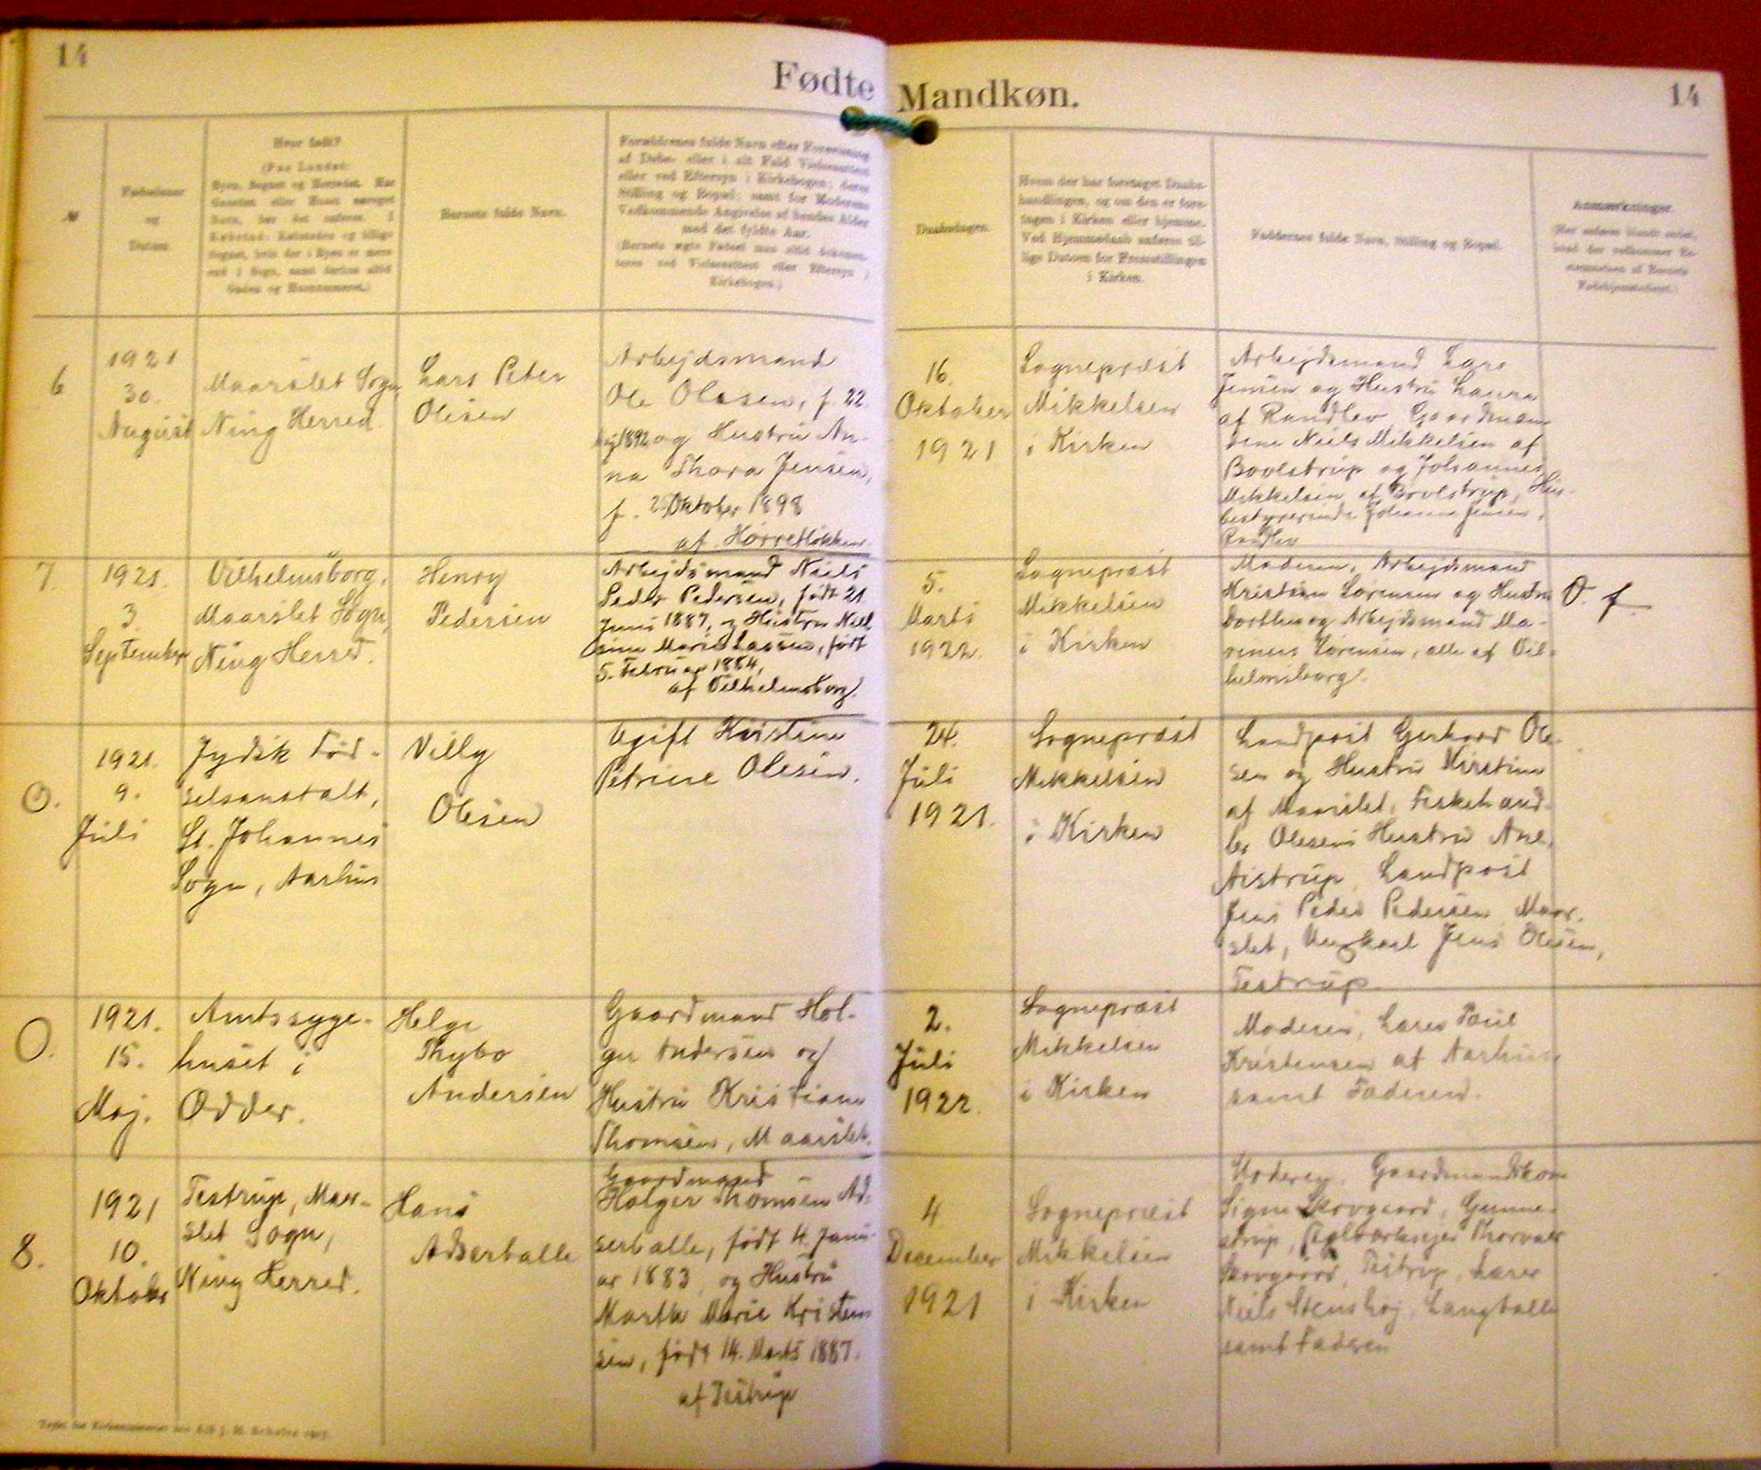 14
Fødte
Mandkøn.
14
№
Fødselsaar
og
Datum.
Hvor født?
(Paa Landet:
Byen, Sognet og Herredet. Har
Gaarden eller Huset særeget
Navn, bør det anføres. I
Købstad: Købstaden og tillige
Sognet, hvis der i Byen er mere
end 1 Sogn, samt derhos altid
Gaden og Husnummeret.)
Barnets fulde Navn.
Forældrenes fulde Navn efter Forevisning
af Daabs- eller i alt Fald Vielsesattest
eller ved Eftersyn i Kirkebogen; deres
Stilling og Bopæl; samt for Moderens
Vedkommende Angivelse af hendes Alder
med det fyldte Aar.
(Barnets ægte Fødsel maa altid dokumen-
teres ved Vielsesattest eller Eftersyn i
Kirkebogen.)
Daabsdagen.
Hvem der har foretaget Daabs-
handlingen, og om den er fore-
tagen i Kirken eller hjemme.
Ved Hjemmedaab anføres til-
lige Datoen for Fremstillingen
i Kirken.
Faddernes fulde Navn, Stilling og Bopæl.
Anmærkninger.
6
1921
30.
August
Maarslet Sogn,
Ning Herred.
Lars Peter
Olesen
Arbejdsmand
Ole Olesen, f. 22.
1892 og Hustru An-
na Thora Jensen,
f. Oktober 1898
af Hørretløkken.
16.
Oktober
1921
Sognepræst
Mikkelsen
i Kirken
Arbejdsmand Lars
Jensen og Hustru Laura
af Randlev, Gaardmæn-
dene Niels Mikkelsen af
Bovlstrup og Johannes
Mikkelsen af Bovlstrup, Hus-
bestyrerinde Johanne Jensen,
Randlev
7.
1921.
3.
September
Vilhelmsborg,
Maarslet Sogn,
Ning Herred.
Henry
Pedersen
Arbejdsmand Niels
Peder Pedersen, født 21
Juni 1887, og Hustru Niel-
sine Marie Lassen, født
5. Februar 1884,
af Vilhelmsborg.
5.
Marts
1922.
Sognepræst
Mikkelsen
i Kirken
Moderen, Arbejdsmand
Kristian Sørensen og Hustru
Dorthea og Arbejdsmand Ma-
rinus Sørensen, alle af Vil-
helmsborg.
O. f.
O.
1921.
9.
Juli
Jydsk Fød-
selsanstalt,
St. Johannes
Sogn, Aarhus
Villy
Olesen
Ugift Kirstine
Petrine Olesen.
24.
Juli
1921.
Sognepræst
Mikkelsen
i Kirken
Landpost Gerhard Ole-
sen og Hustru Kirstine
af Maarslet, Fiskehand-
ler Olesens Hustru Ane,
Aistrup, Landpost
Jens Peder Pedersen Maar-
slet, Ungkarl Jens Olesen,
Testrup.
O.
1921.
15.
Maj.
Amtssyge-
huset i
Odder.
Helge
Thybo
Andersen
Gaardmand Hol-
ger Andersen og
Hustru Kristiane
Thomsen, Maarslet.
2.
Juli
1922.
Sognepræst
Mikkelsen
i Kirken
Moderen, Lærer Poul
Kristensen af Aarhus
samt Faderen.
8.
1921
10.
Oktober
Testrup, Maar-
slet Sogn,
Ning Herred.
Hans
Adserballe
Gaardmand
Holger Thomsen Ad-
serballe, født 4. Janu-
ar 1883, og Hustru
Martha Marie Kristen-
sen, født 14. Marts 1887.
af Testrup
4
December
1921
Sognepræst
Mikkelsen
i Kirken
Moderen, Gaardmandskone
Signe Skovgaard, Gunne-
strup, Teglværksejer Thorvald
Skovgaard, Testrup, Lærer
Niels Stenshøj, Langballe
samt Faderen